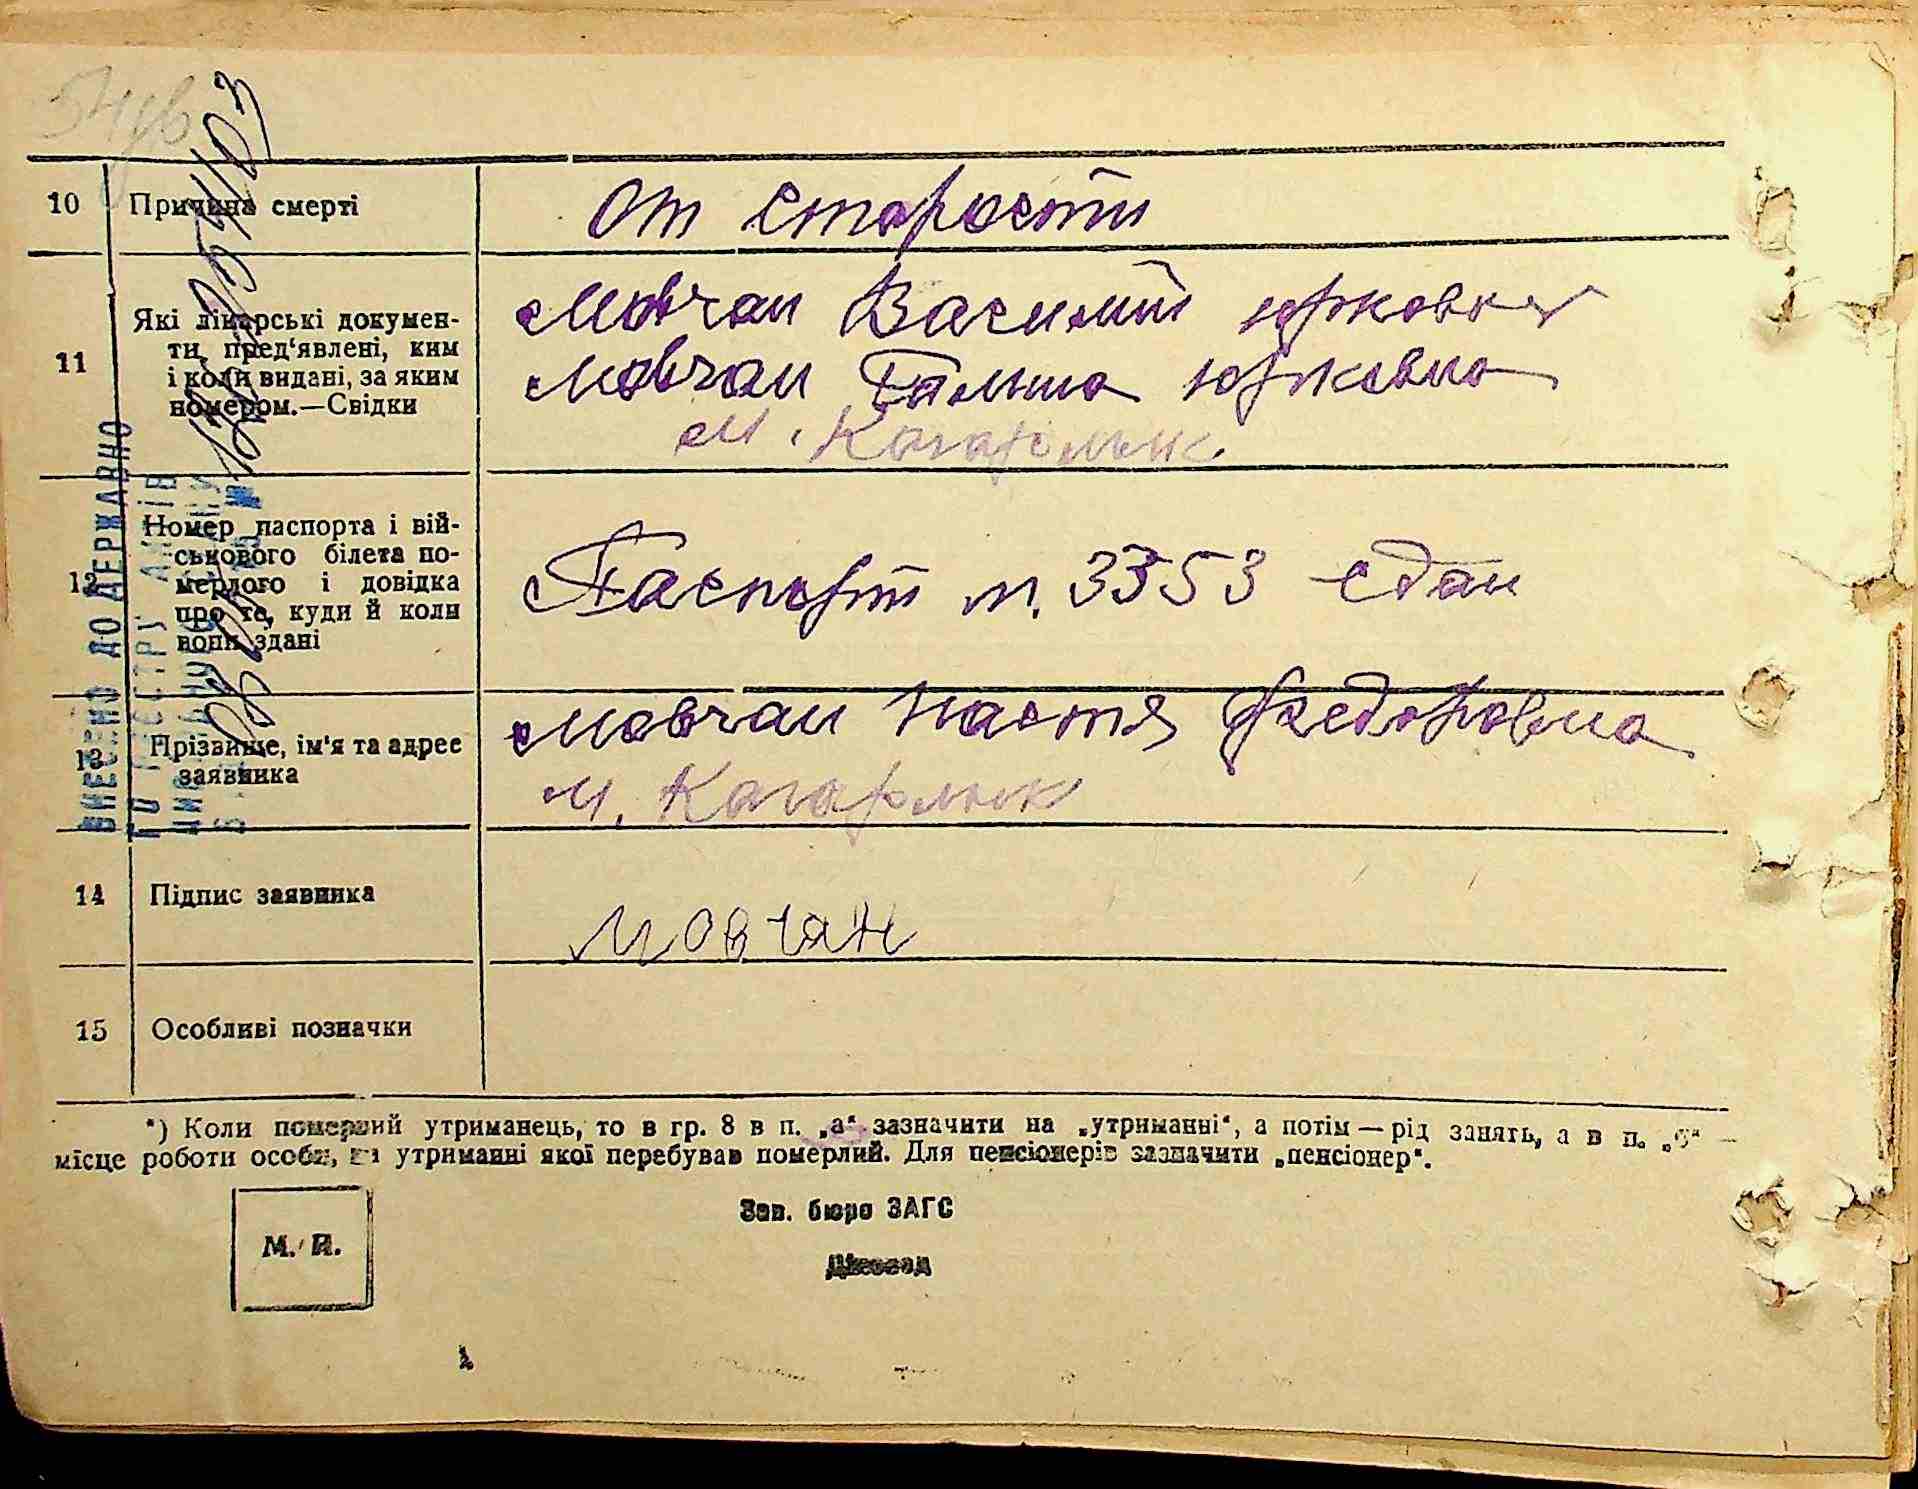 54
10 Причина смерті
От старости
11 Які лікарські докумен-
ти пред'явлені, ким
і коли видані, за яким
номером.—Свідки
Мовчан Василий
Мовчан Галина Юрковна
м. Кагарлык
12 Номер паспорта і вій-
ськового білета по-
мерлого і довідка
про те, куди й коли
вони здані
Паспорт н. 3353 сдан
13 Прізвище, ім'я та адрес
заявника
Мовчан Настя Федоровна
м. Кагарлык
14 Підпис заявника
Мовчан
15 Особливі позначки
*) Коли померший утриманець, то в гр. 8 в п. „а“ зазначити на „утриманні“, а потім — рід занять, а в п. „б“ —
місце роботи особи, на утриманні якої перебував померлий. Для пенсіонерів зазначити „пенсіонер“.
М. П.
Зав. бюро ЗАГС
Діловод
ВНЕСЕНО ДО ДЕРЖАВНО
ГО РЕЄСТРУ АКТІВ
ЦИВІЛЬНОГО СТАНУ